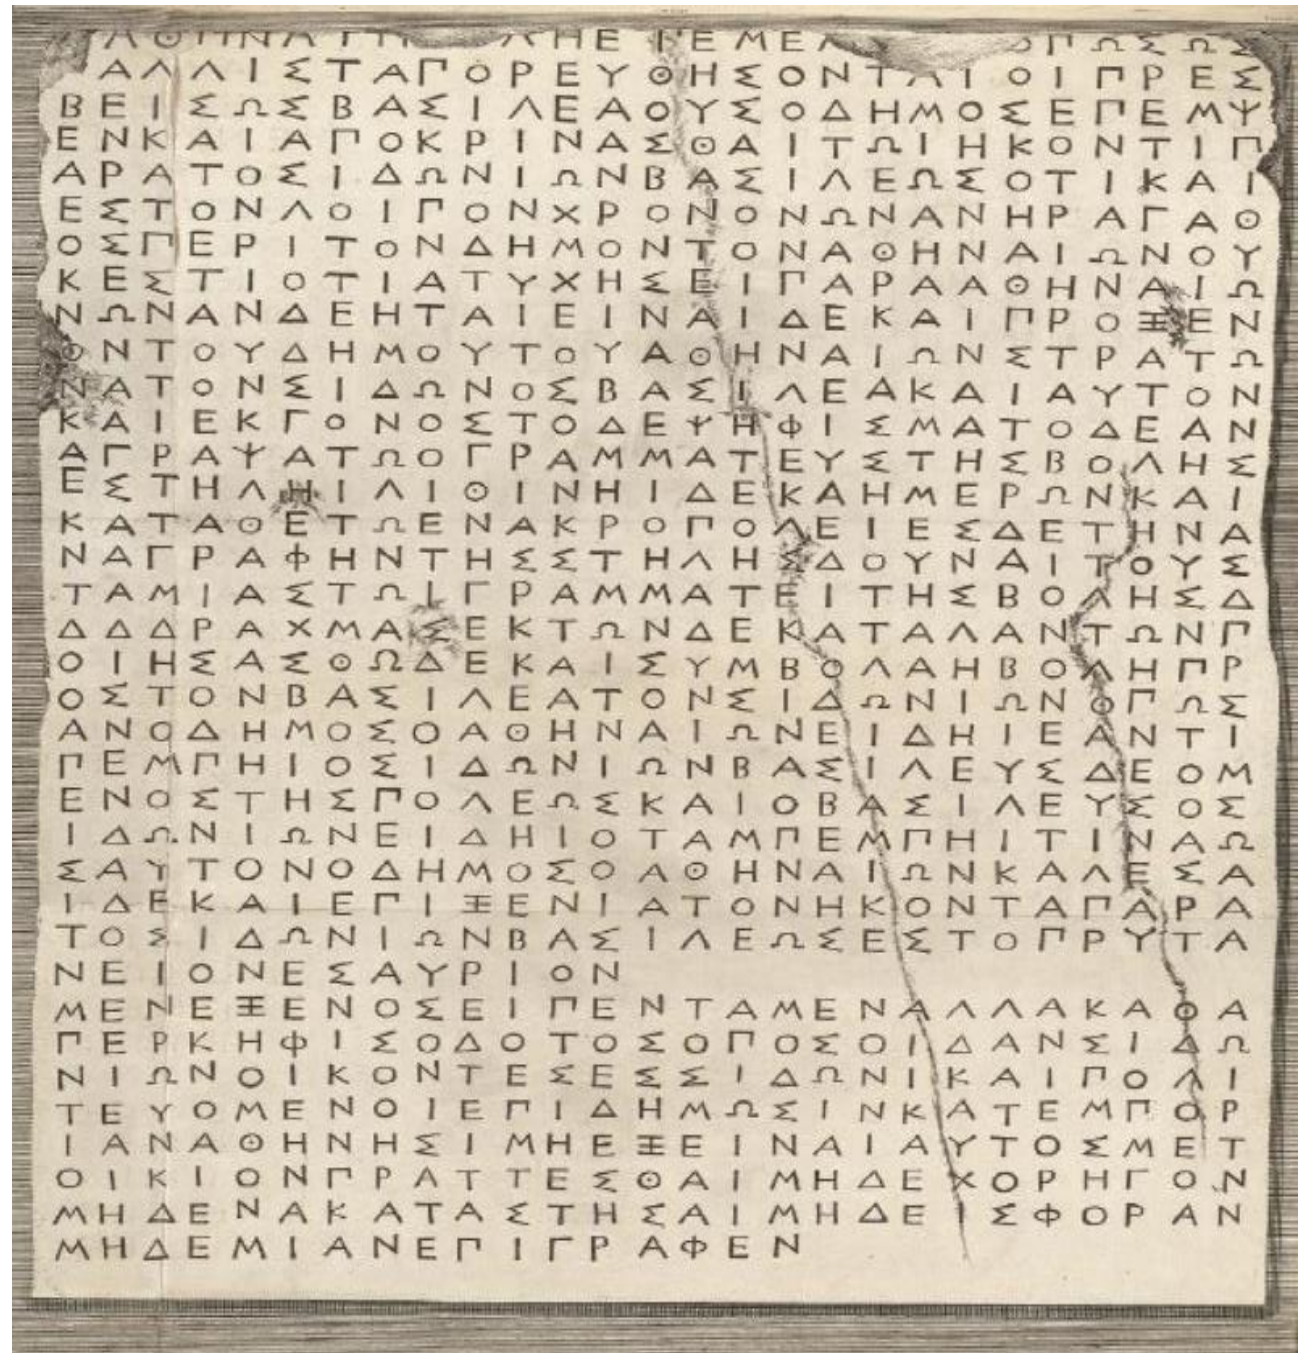 ΑΘΗΝΑΙ ΛΗΕΠΕΜΕΛ ΟΠΩΣΩΣ
ΑΛΛΙΣΤΑΠΟΡΕΥΘΗΣΟΝΤΑΙΟΙΠΡΕΣ
ΒΕΙΣΩΣΒΑΣΙΛΕΑΟΥΣΟΔΗΜΟΣΕΠΕΜΨ
ΕΝΚΑΙΑΠΟΚΡΙΝΑΣΘΑΙΤΩΙΗΚΟΝΤΙΠ
ΑΡΑΤΟΣΙΔΩΝΙΩΝΒΑΣΙΛΕΩΣΟΤΙΚΑΙ
ΕΣΤΟΝΛΟΙΠΟΝΧΡΟΝΟΝΩΝΑΝΗΡΑΓΑΘ
ΟΣΠΕΡΙΤΟΝΔΗΜΟΝΤΟΝΑΘΗΝΑΙΩΝΟΥ
ΚΕΣΤΙΟΤΙΑΤΥΧΗΣΕΙΠΑΡΑΑΘΗΝΑΙΩ
ΝΩΝΑΝΔΕΗΤΑΙΕΙΝΑΙΔΕΚΑΙΠΡΟΞΕΝ
ΟΝΤΟΥΔΗΜΟΥΤΟΥΑΘΗΝΑΙΩΝΣΤΡΑΤΩ
ΝΑΤΟΝΣΙΔΩΝΟΣΒΑΣΙΛΕΑΚΑΙΑΥΤΟΝ
ΚΑΙΕΚΓΟΝΟΣΤΟΔΕΨΗΦΙΣΜΑΤΟΔΕΑΝ
ΑΓΡΑΨΑΤΩΟΓΡΑΜΜΑΤΕΥΣΤΗΣΒΟΛΗΣ
ΕΣΤΗΛΗΙΛΙΘΙΝΗΙΔΕΚΑΗΜΕΡΩΝΚΑΙ
ΚΑΤΑΘΕΤΩΕΝΑΚΡΟΠΟΛΕΙΕΣΔΕΤΗΝΑ
ΝΑΓΡΑΦΗΝΤΗΣΣΤΗΛΗΣΔΟΥΝΑΙΤΟΥΣ
ΤΑΜΙΑΣΤΩΙΓΡΑΜΜΑΤΕΙΤΗΣΒΟΛΗΣΔ
ΔΔΔΡΑΧΜΑΣΕΚΤΩΝΔΕΚΑΤΑΛΑΝΤΩΝΠ
ΟΙΗΣΑΣΘΩΔΕΚΑΙΣΥΜΒΟΛΑΗΒΟΛΗΠΡ
ΟΣΤΟΝΒΑΣΙΛΕΑΤΟΝΣΙΔΩΝΙΩΝΟΠΩΣ
ΑΝΟΔΗΜΟΣΟΑΘΗΝΑΙΩΝΕΙΔΗΙΕΑΝΤΙ
ΠΕΜΠΗΙΟΣΙΔΩΝΙΩΝΒΑΣΙΛΕΥΣΔΕΟΜ
ΕΝΟΣΤΗΣΠΟΛΕΩΣΚΑΙΟΒΑΣΙΛΕΥΣΟΣ
ΙΔΩΝΙΩΝΕΙΔΗΙΟΤΑΜΠΕΜΠΗΙΤΙΝΑΩ
ΣΑΥΤΟΝΟΔΗΜΟΣΟΑΘΗΝΑΙΩΝΚΑΛΕΣΑ
ΙΔΕΚΑΙΕΠΙΞΕΝΙΑΤΟΝΗΚΟΝΤΑΠΑΡΑ
ΤΟΣΙΔΩΝΙΩΝΒΑΣΙΛΕΩΣΕΣΤΟΠΡΥΤΑ
ΝΕΙΟΝΕΣΑΥΡΙΟΝ
ΜΕΝΕΞΕΝΟΣΕΙΠΕΝΤΑΜΕΝΑΛΛΑΚΑΘΑ
ΠΕΡΚΗΦΙΣΟΔΟΤΟΣΟΠΟΣΟΙΔΑΝΣΙΔΩ
ΝΙΩΝΟΙΚΟΝΤΕΣΕΣΣΙΔΩΝΙΚΑΙΠΟΛΙ
ΤΕΥΟΜΕΝΟΙΕΠΙΔΗΜΩΣΙΝΚΑΤΕΜΠΟΡ
ΙΑΝΑΘΗΝΗΣΙΜΗΕΞΕΙΝΑΙΑΥΤΟΣΜΕΤ
ΟΙΚΙΟΝΠΡΑΤΤΕΣΘΑΙΜΗΔΕΧΟΡΗΓΟΝ
ΜΗΔΕΝΑΚΑΤΑΣΤΗΣΑΙΜΗΔΕΙΣΦΟΡΑΝ
ΜΗΔΕΜΙΑΝΕΠΙΓΡΑΦΕΝ